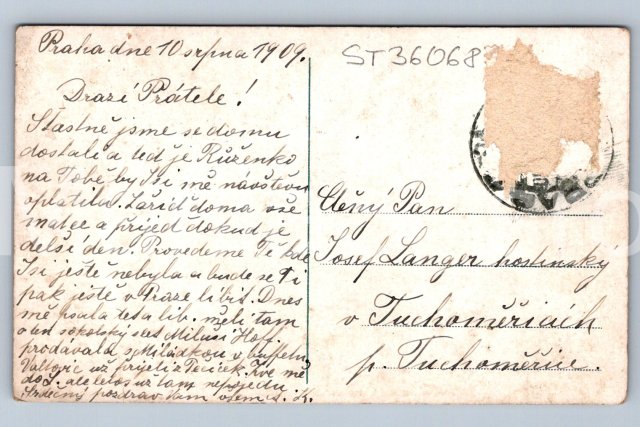 Praha dne 10 srpna 1909.
ST36068
Drazí Přátele!
Šťastně jsme se domu
dostali a teď je Růženko
na Tobě by Jsi mě návštěvu
oplatila. Zařiď doma vše
matce a přijeď dokud je
delší den. Provedeme Tě kde
Jsi ještě nebyla a bude se Ti
pak ještě v Praze líbit. Dnes
mě psala teta lib. měli tam
on sokolský slet Miluš Hoff.
prodávala s Miládkou v buffetu
už přijeli z Zve mě
do ale letos už tam nepojedu.
Srdečný pozdrav Vám všem A. K.
Ctěný Pan
Josef Langer hostinský
v Tuchoměřicích
p. Tuchoměřice.